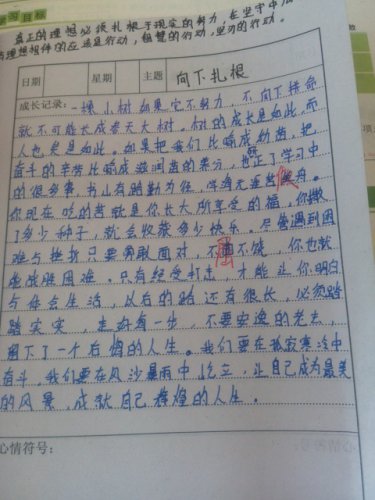 习目标
真正的理想必须扎根于现实的努力，在坚守中
与理想相伴的应该是行动，租暂的行动，坚韧的行动。
日期 星期 主题 向下扎根
成长记录：一棵小树如果它不努力，不向下拼命
就不可能长成参天大树。树的成长是如此，而
人也更是如此。如果把我们比喻成幼苗，把
奋斗的辛苦比喻成滋润苗的养分，也正学习中
的很多事，书山有路勤为径，学海无涯苦做舟。
你现在吃的苦就是你长大所享受的福，你撒
了多少种子，就会收获多少快乐。尽管遇到困
难与挫折只要勇敢面对，不屈不饶，你也就
能战胜困难。只有经受打击，才能让你明白
与体会生活，以后的路还有很长，必须踏
踏实实，走好每一步，不要安逸的老去，
留下了一个后悔的人生。我们要在孤寂寒冷中
奋斗。我们要在风沙暴雨中屹立，让自己成为最美
的风景，成就自己辉煌的人生。
心情符号：